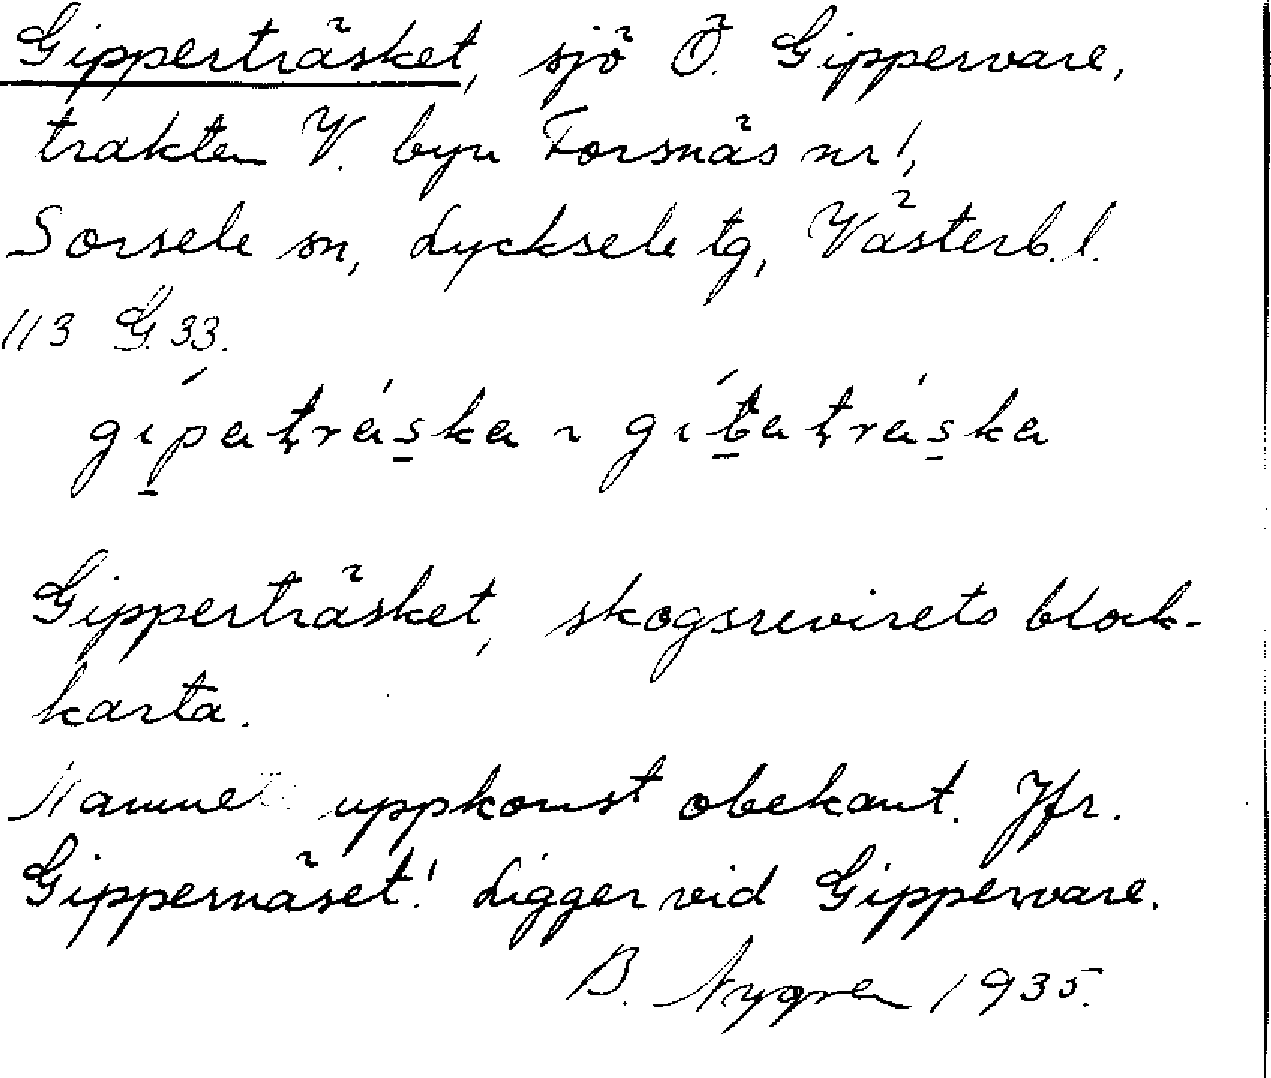 Gipperträsket, sjö Ö. Gippervare,
trakten V. byn Forsnäs nr 1,
Sorsele sn, Lycksele tg, Västerb. l.
113 G 33.
Gipperträsket, skogsrevirets block-
karta.
Namnets uppkomst obekant. Jfr.
Gippernäset! Ligger vid Gippervare.
B. Nygren 1935.